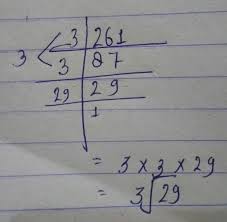 3 | 261
3 < 3 | 87
29 | 29
1
= 3 × 3 × 29
= 3√29